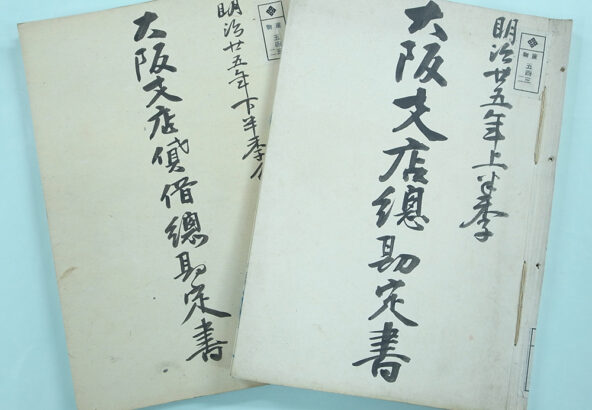 明治廿五年上半季
大阪支店總勘定書
五四三
明治廿五年下半季
大阪支店貸借總勘定書